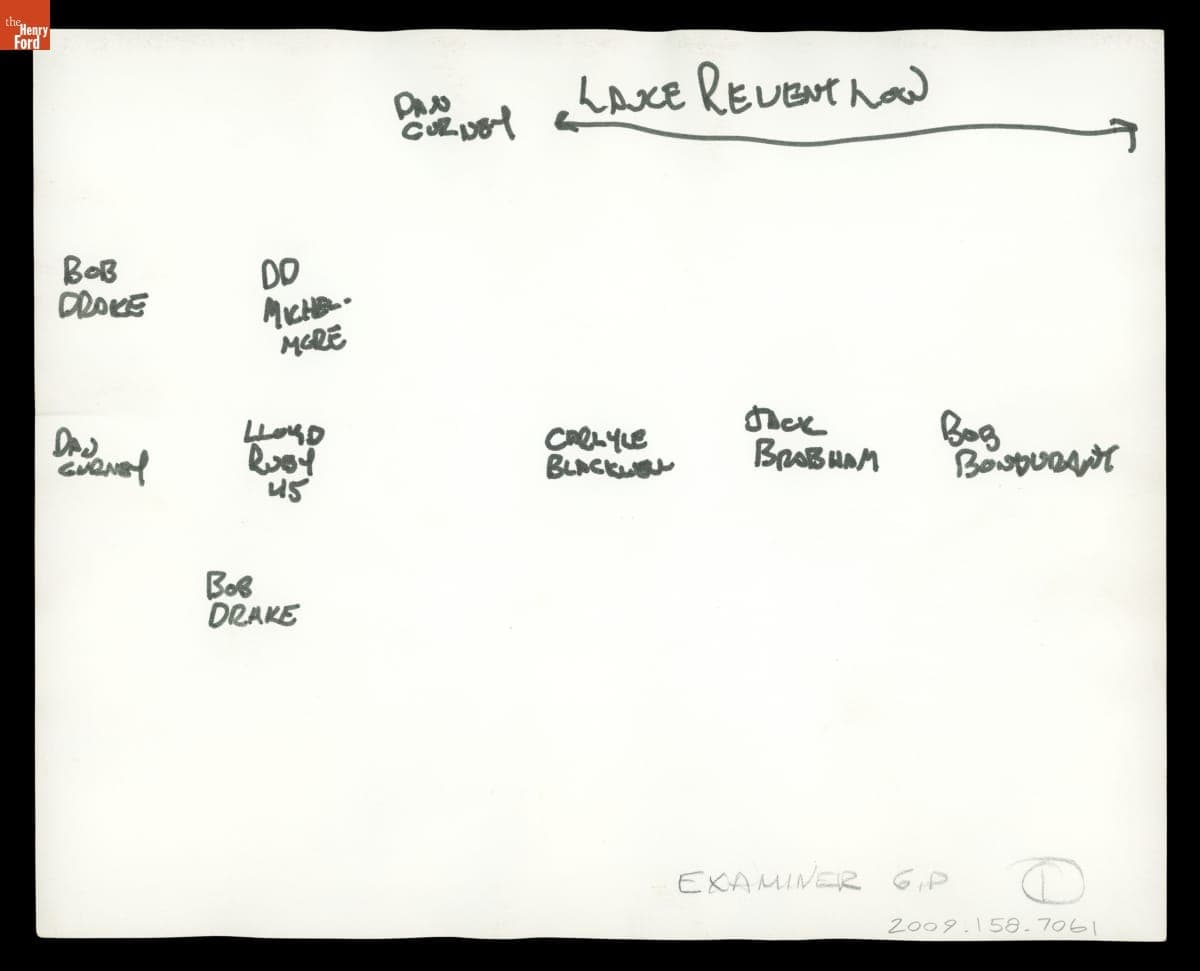 the
Henry
Ford
DAN
GURNEY
LANCE REVENTLOW
BOB
DRAKE
DD
MICHEL-
MORE
DAN
GURNEY
LLOYD
RUBY
45
CARLYLE
BLACKWELL
JACK
BRABHAM
BOB
BONDURANT
BOB
DRAKE
EXAMINER G.P
2009.158.7061